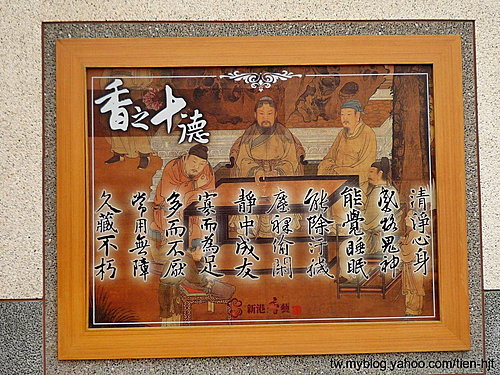 香之十德
清淨心身
感格鬼神
能覺睡眠
能除汙穢
塵裡偷閑
靜中成友
寡而為足
多而不厭
常用無障
久藏不朽
新港香藝
tw.myblog.yahoo.com/tien-hjt